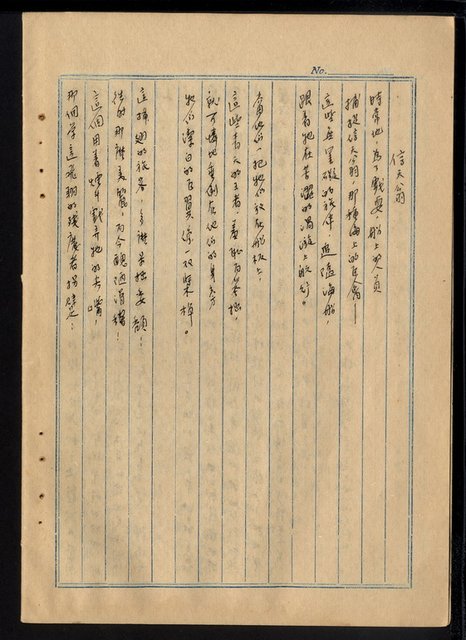 No.
信天翁
時常地，為了戲耍，船上的人員
捕捉信天翁，那種海上的巨禽——
這些無罣礙的旅伴，追隨海船，
跟著牠在苦澀的漩渦上航行。
當他們一把牠們放在船板上，
這些青天的王者，羞恥而笨拙，
就可憐地垂倒在他們的身旁
牠們潔白的巨翼，像一双槳棹。
這插翅的旅客，多麼萎拙委頹！
往時那麼美麗，而今醜陋滑稽！
這個用著煙斗戲弄牠的尖嘴，
那個學這飛翔的殘廢者拐躄！